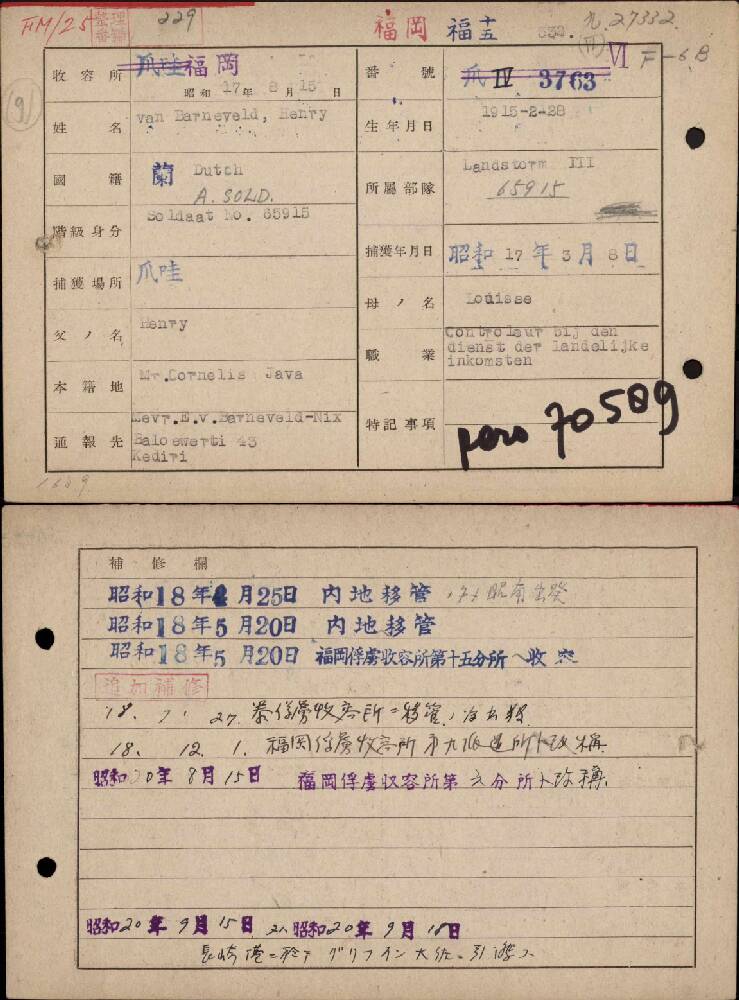 FM/25 整理番號 229 福岡 福十五 九. 27332
收容所 爪哇 福岡 昭和 17 年 8 月 15 日
番號 爪 IV 3763 VI F-6B
姓名 van Barneveld, Henry
生年月日 1915-2-28
國籍 蘭 Dutch
所屬部隊 Landstorm III
65915
A. SOLD.
階級身分 Soldaat No. 65915
捕獲年月日 昭和 17 年 3 月 8 日
捕獲場所 爪哇
母ノ名 Louisse
父ノ名 Henry
職業 Controleur bij den
dienst der landelijke
inkomsten
本籍地 Mr.Cornelis Java
特記事項 pers 70509
通報先 Mevr.E.v.Barneveld-Nix
Baloewerti 43
Kediri
1609
補修欄
昭和18年4月25日 内地移管
昭和18年5月20日 内地移管
昭和18年5月20日 福岡俘虜收容所第十五分所へ收容
追加補修
18. 7. 27.
18. 12. 1. 福岡俘虜收容所 改稱
昭和20年8月15日 福岡俘虜収容所第 六 分所ト改稱
昭和20年9月15日 昭和20年9月18日
長崎港ニ於テ グリフイン大佐ニ引渡ス